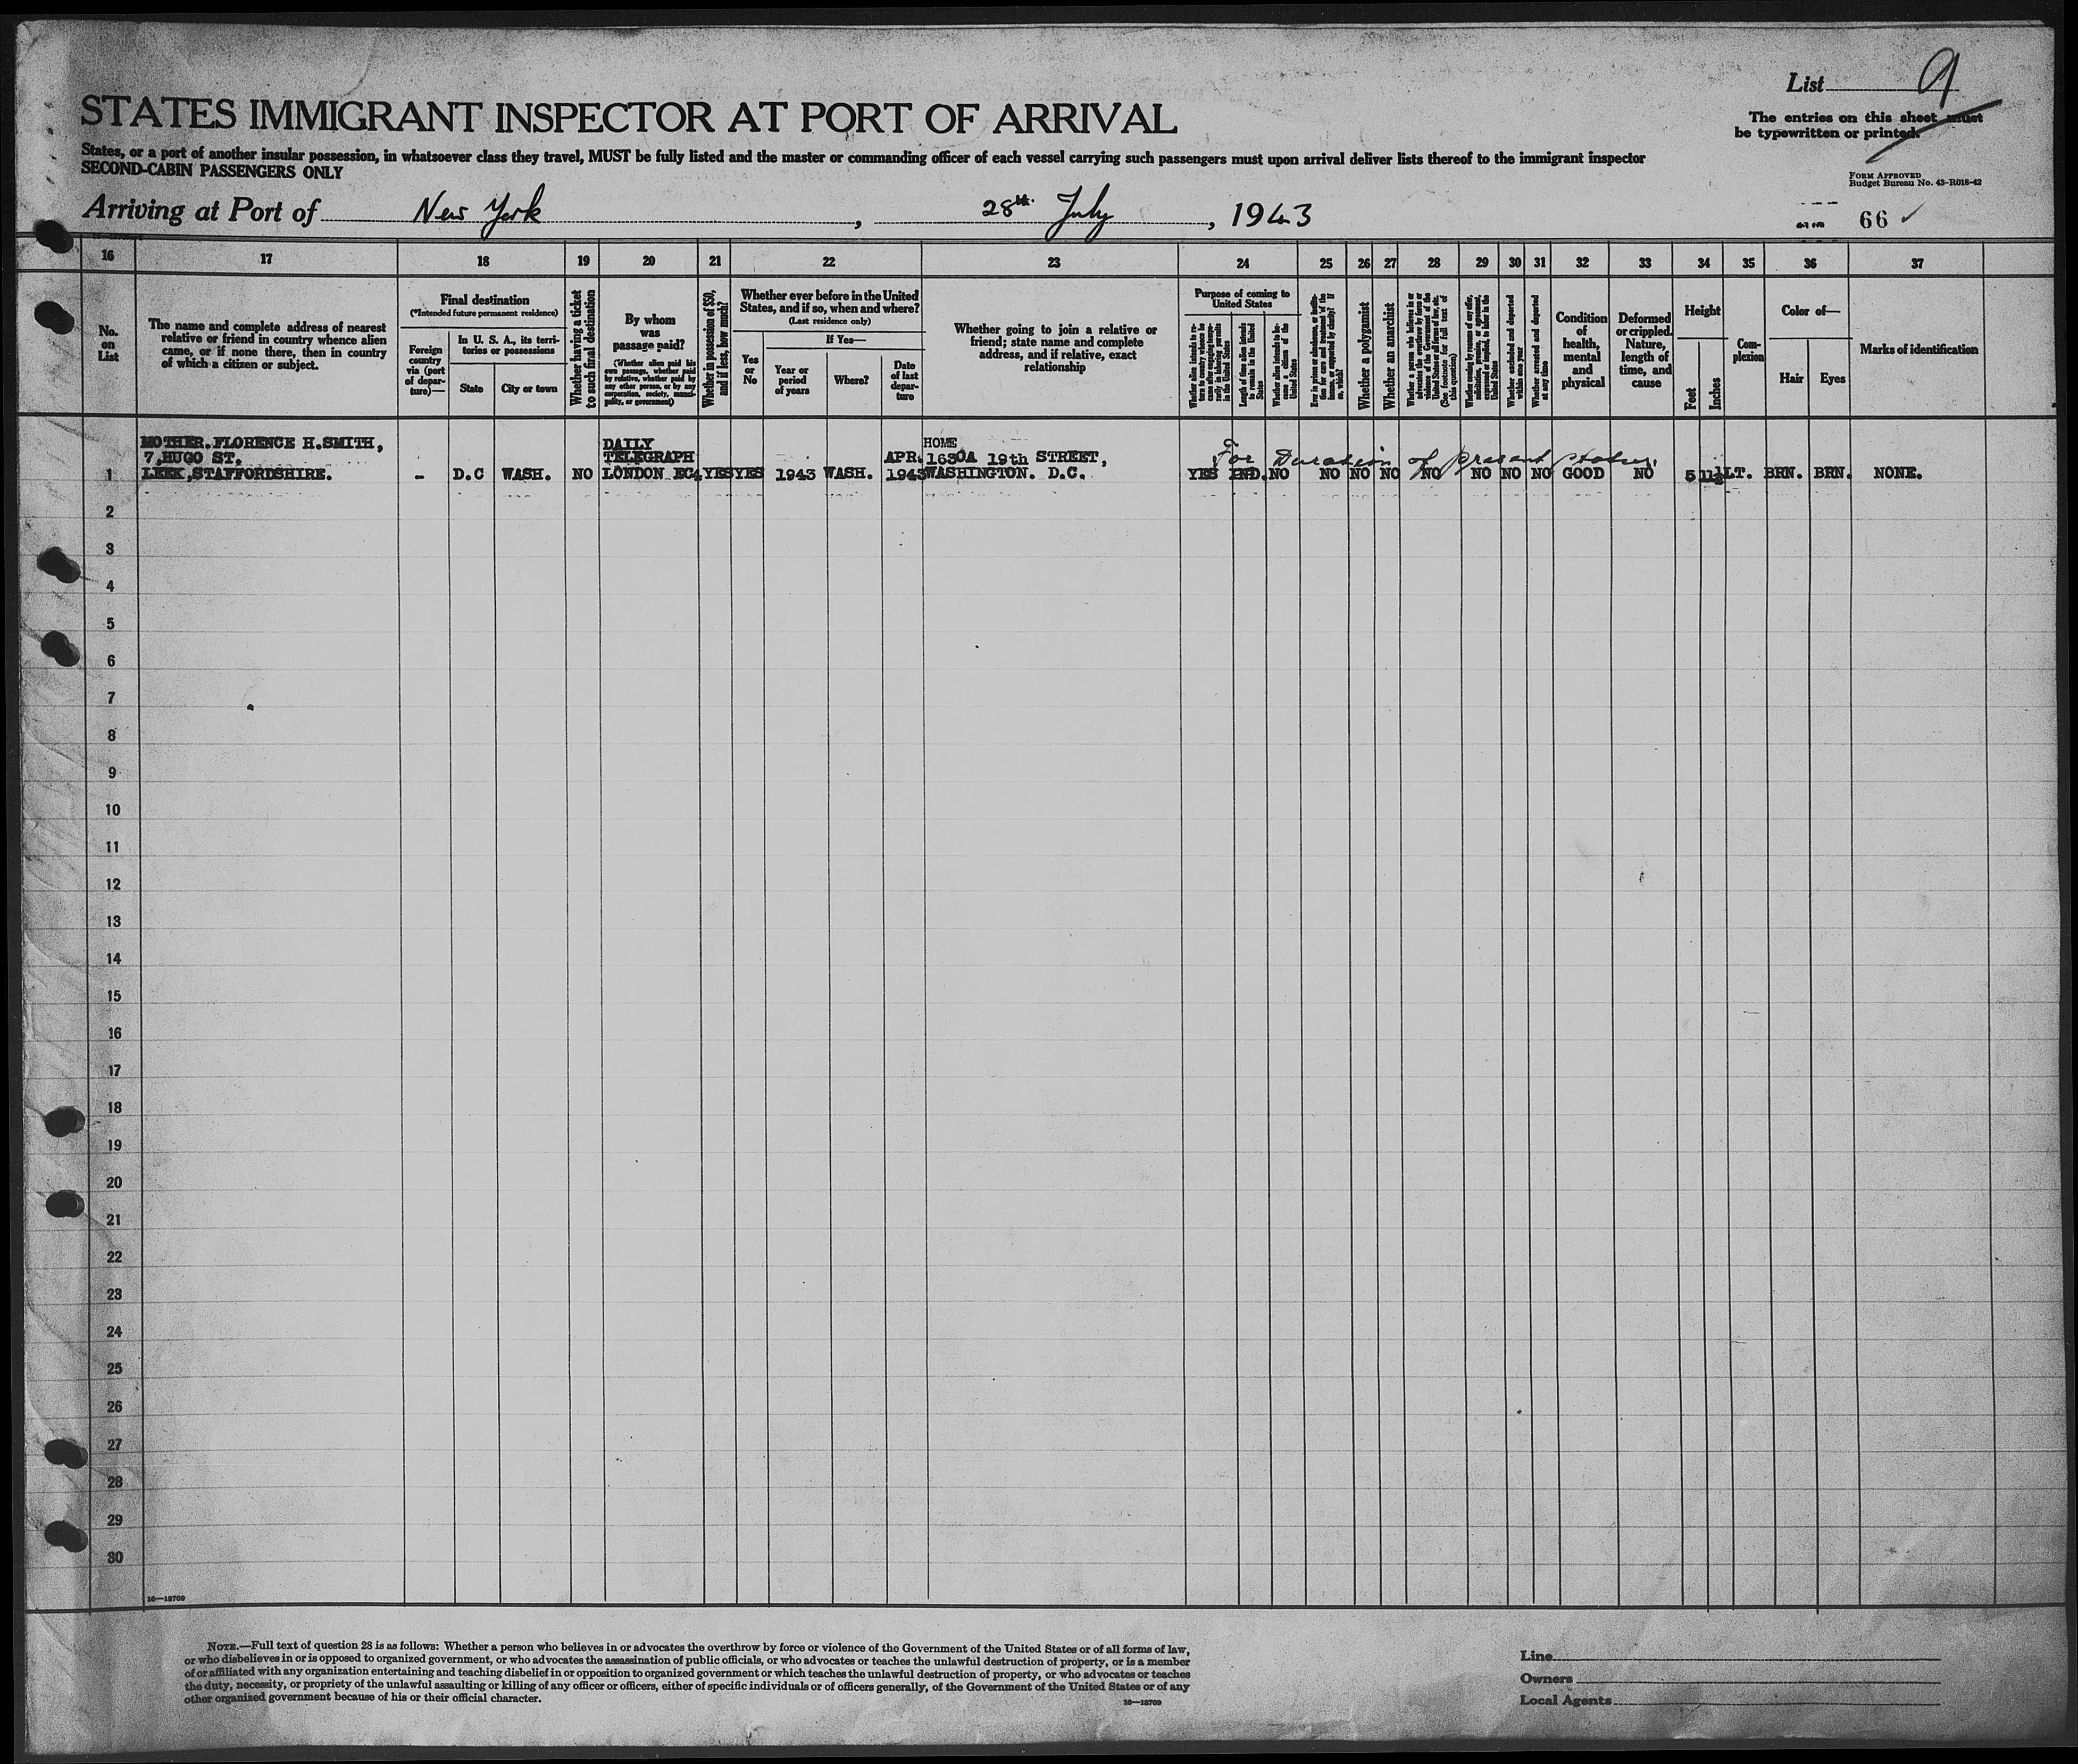 List 9
STATES IMMIGRANT INSPECTOR AT PORT OF ARRIVAL
The entries on this sheet must
be typewritten or printed.
States, or a port of another insular possession, in whatsoever class they travel, MUST be fully listed and the master or commanding officer of each vessel carrying such passengers must upon arrival deliver lists thereof to the immigrant inspector
SECOND-CABIN PASSENGERS ONLY
FORM APPROVED
Budget Bureau No. 43-R018-42
Arriving at Port of New York, 28th July, 1943
66 ✓
16 17 18 19 20 21 22 23 24 25 26 27 28 29 30 31 32 33 34 35 36 37
No.
on
List
The name and complete address of nearest
relative or friend in country whence alien
came, or if none there, then in country
of which a citizen or subject.
Final destination
(*Intended future permanent residence)
Foreign
country
via (port
of depar-
ture)—
In U. S. A., its terri-
tories or possessions
State
City or town
Whether having a ticket
to such final destination
By whom
was
passage paid?
(Whether alien paid his
own passage, whether paid
by relative, whether paid by
any other person, or by any
corporation, society, munici-
pality, or government)
Whether in possession of $50,
and if less, how much?
Whether ever before in the United
States, and if so, when and where?
(Last residence only)
Yes
or
No
If Yes—
Year or
period
of years
Where?
Date
of last
depar-
ture
Whether going to join a relative or
friend; state name and complete
address, and if relative, exact
relationship
Purpose of coming to
United States
Whether alien intends to re-
turn to country whence he
came after engaging tempo-
rarily in laboring pursuits
in the United States
Length of time alien intends
to remain in the United
States
Whether alien intends to be-
come a citizen of the
United States
Whether a polygamist
Whether an anarchist
(See footnote for full text of
this question)
Whether excluded and deported
within one year
Whether arrested and deported
at any time
Condition
of
health,
mental
and
physical
Deformed
or crippled.
Nature,
length of
time, and
cause
Height
Feet
Inches
Com-
plexion
Color of—
Hair
Eyes
Marks of identification
MOTHER. FLORENCE H.SMITH,
7,HUGO ST.
LEEK,STAFFORDSHIRE.
DAILY
TELEGRAPH
LONDON EC4
HOME
1630A 19th STREET,
WASHINGTON. D.C.
For Duration of present status.
1 - D.C WASH. NO YES YES 1943 WASH. APR. 1943 YES IND. NO NO NO NO NO NO NO NO GOOD NO 5 11½ LT. BRN. BRN. NONE.
2
3
4
5
6
7
8
9
10
11
12
13
14
15
16
17
18
19
20
21
22
23
24
25
26
27
28
29
30
16—18709
NOTE.—Full text of question 28 is as follows: Whether a person who believes in or advocates the overthrow by force or violence of the Government of the United States or of all forms of law,
or who disbelieves in or is opposed to organized government, or who advocates the assassination of public officials, or who advocates or teaches the unlawful destruction of property, or is a member
of or affiliated with any organization entertaining and teaching disbelief in or opposition to organized government or which teaches the unlawful destruction of property, or who advocates or teaches
the duty, necessity, or propriety of the unlawful assaulting or killing of any officer or officers, either of specific individuals or of officers generally, of the Government of the United States or of any
other organized government because of his or their official character.
16—18709
Line
Owners
Local Agents